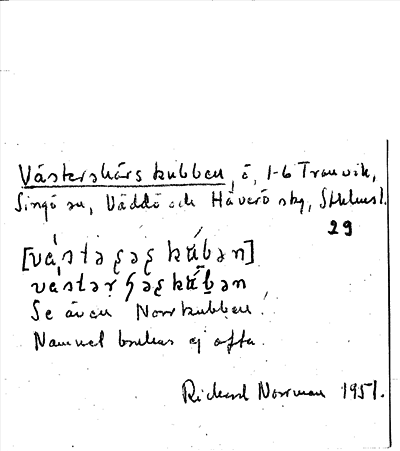 Västerskärskubben, ö, 1-6 Tranvik,
Singö sn, Väddö och Häverö skg, Sthlms l.
29
[vá̀stəʂəʂkúbən]
västərʂəʂkúbən
Se även Norrkubben.
Namnet brukas ej ofta.
Rickard Norrman 1951.